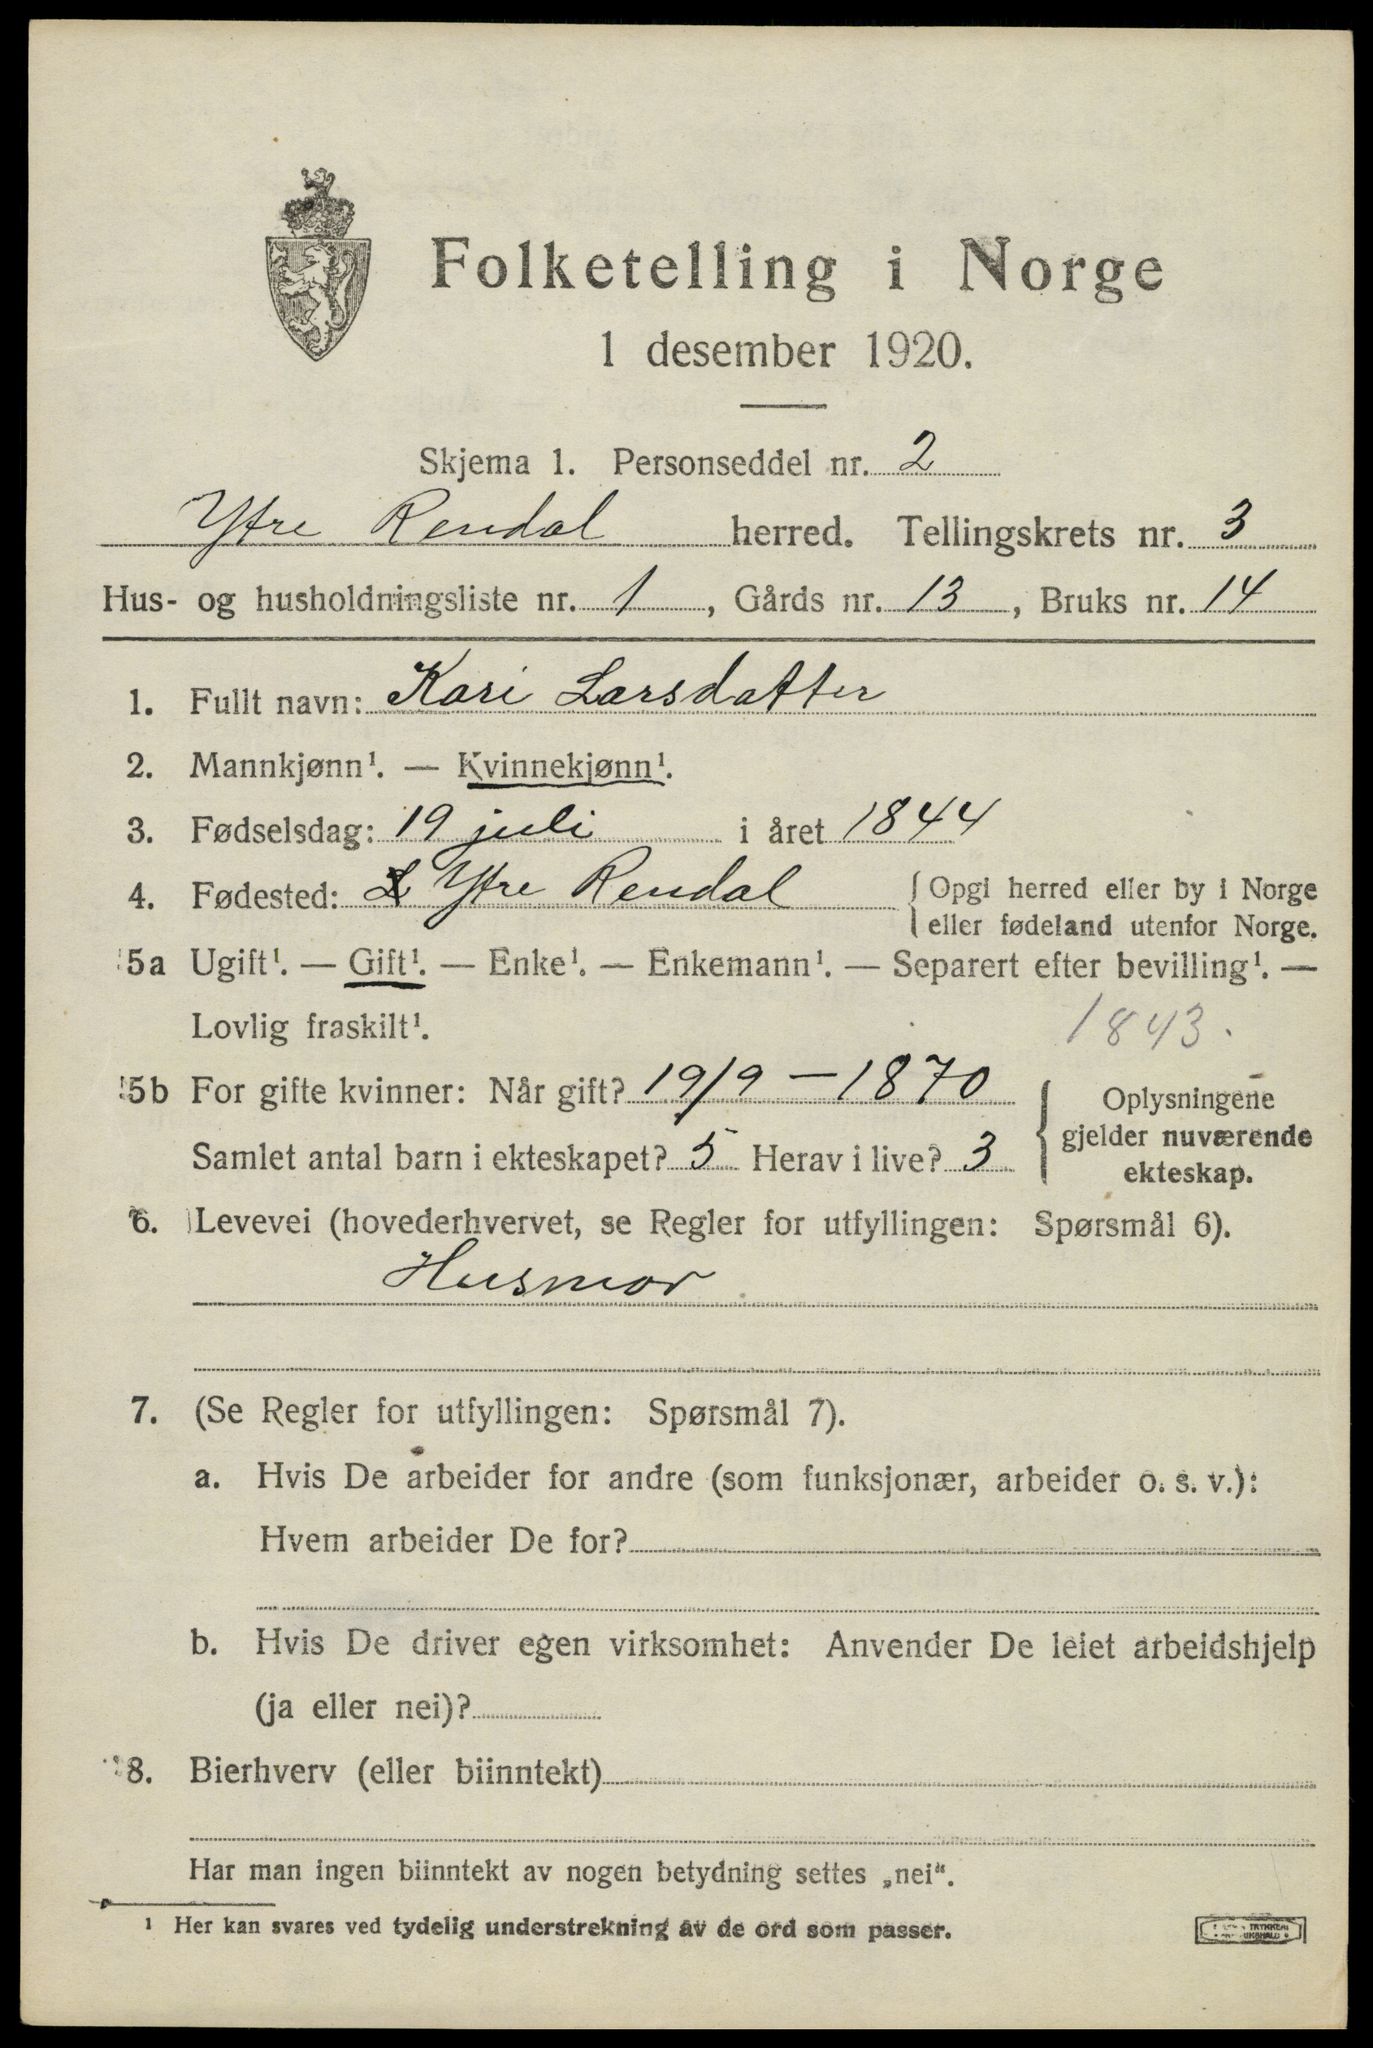 Folketelling i Norge
1 desember 1920.
Skjema 1. Personseddel nr. 2
Ytre Rendal herred. Tellingskrets nr. 3
Hus- og husholdningsliste nr. 1, Gårds nr. 13, Bruks nr. 14
1. Fullt navn: Kari Larsdatter
2. Mannkjønn¹. — Kvinnekjønn¹.
3. Fødselsdag: 19 juli i året 1844
4. Fødested: Ytre Rendal { Opgi herred eller by i Norge
eller fødeland utenfor Norge.
5a Ugift¹. — Gift¹. — Enke¹. — Enkemann¹. — Separert efter bevilling¹. —
Lovlig fraskilt¹.
1843.
5b For gifte kvinner: Når gift? 19/9 — 1870
Samlet antal barn i ekteskapet? 5 Herav i live? 3
{ Oplysningene
gjelder nuværende
ekteskap.
6. Levevei (hovederhvervet, se Regler for utfyllingen: Spørsmål 6).
Husmor
7. (Se Regler for utfyllingen: Spørsmål 7).
a. Hvis De arbeider for andre (som funksjonær, arbeider o. s. v.):
Hvem arbeider De for?
b. Hvis De driver egen virksomhet: Anvender De leiet arbeidshjelp
(ja eller nei)?
8. Bierhverv (eller biinntekt)
Har man ingen biinntekt av nogen betydning settes „nei".
¹ Her kan svares ved tydelig understrekning av de ord som passer.